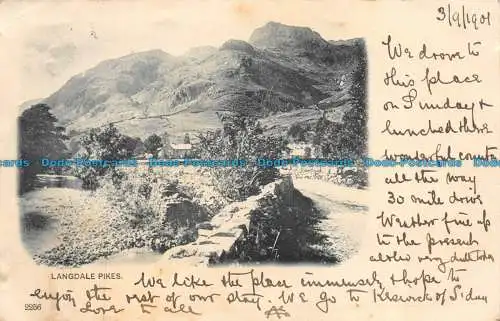 3/9/1901
We drove to
this place
on Sunday &
lunched there
wonderful country
all the way
30 mile drive
Weather fine up
to the present
also very dull today
LANGDALE PIKES.
We like the place immensely & hope to
enjoy the rest of our stay. We go to Keswick of S'day
2256
Love to all